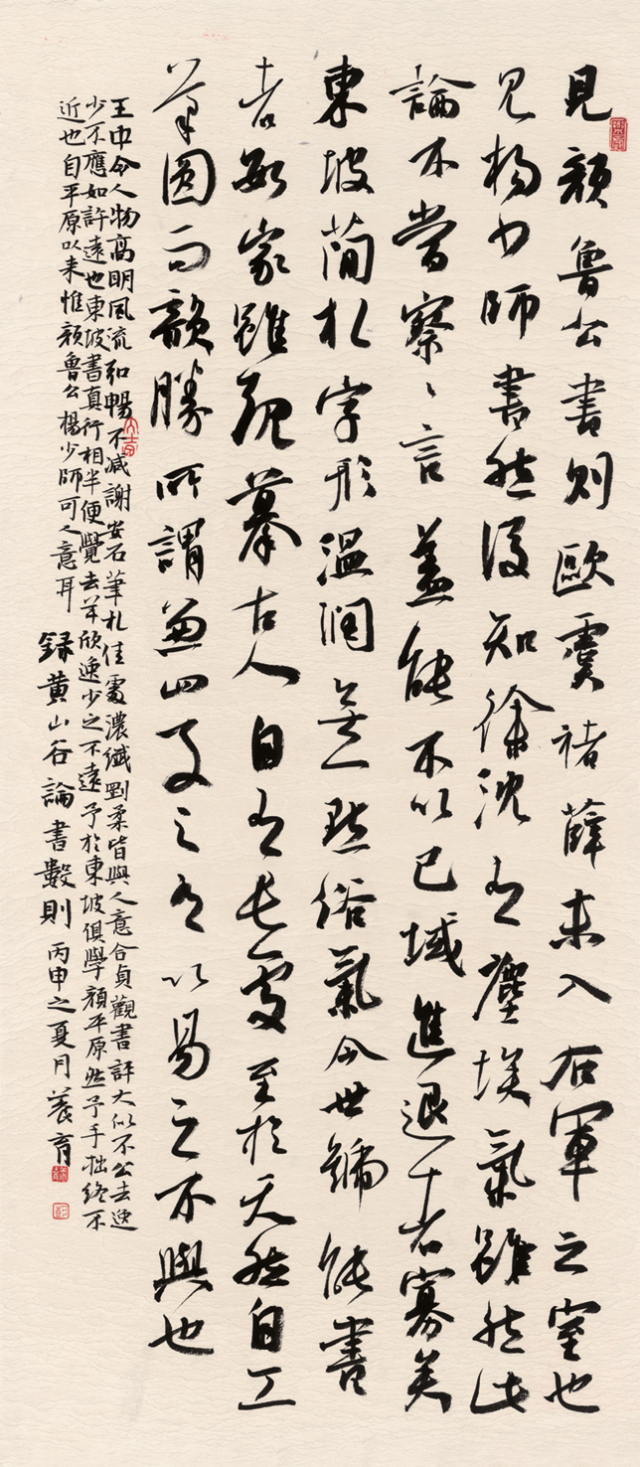 見顏魯公書則歐虞褚薛未入右軍之室也
見楊少師書然後知徐沈有塵埃氣雖然此
論不當察〻言蓋能不以己域進退者寡矣
東坡簡札字形溫潤無一點俗氣今世號能書
者數家雖規摹古人自有長處至於天然自工
筆圓而韻勝所謂兼四子之有以易之不與也
王中令人物高明風流和暢不減謝安石筆札佳處濃纖剛柔皆與人意合貞觀書評大似不公去逸
少不應如許遠也東坡書真行相半便覺去羊欣逸少之不遠予於東坡俱學顏平原然予手拙終不
近也自平原以來惟顏魯公楊少師可人意耳
録黃山谷論書數則 丙申之夏月 養育